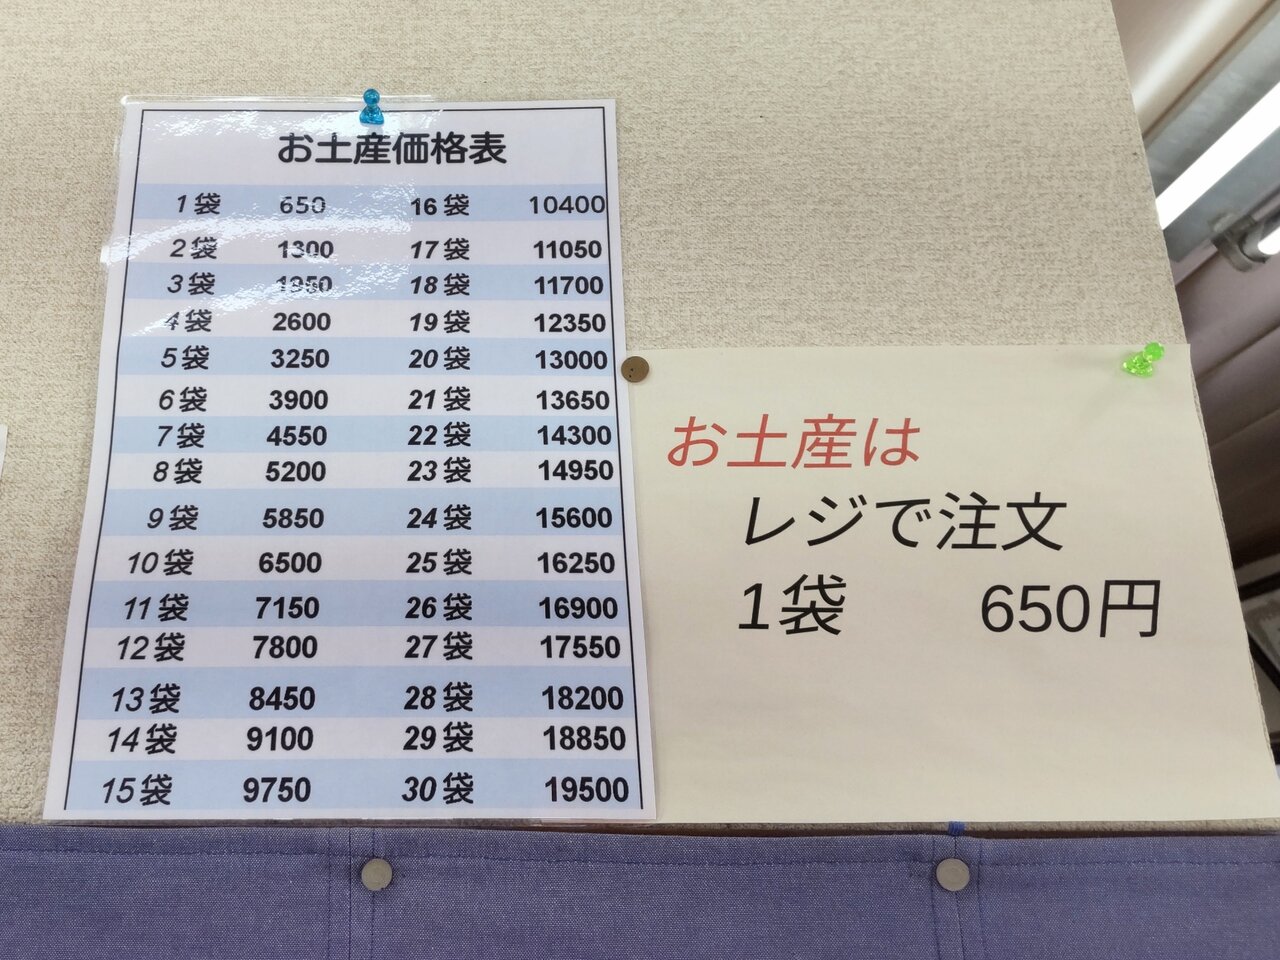 お土産価格表
1袋 650 16袋 10400
2袋 1300 17袋 11050
3袋 1950 18袋 11700
4袋 2600 19袋 12350
5袋 3250 20袋 13000
6袋 3900 21袋 13650
7袋 4550 22袋 14300
8袋 5200 23袋 14950
9袋 5850 24袋 15600
10袋 6500 25袋 16250
11袋 7150 26袋 16900
12袋 7800 27袋 17550
13袋 8450 28袋 18200
14袋 9100 29袋 18850
15袋 9750 30袋 19500
お土産は
レジで注文
1袋 650円